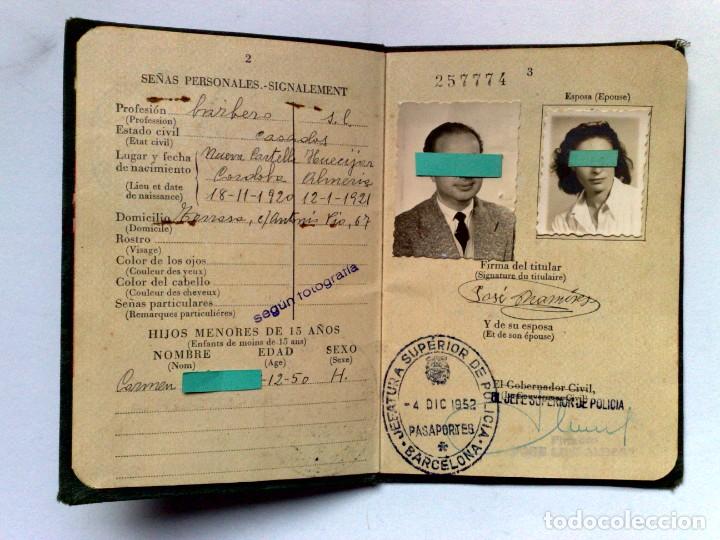 2
SEÑAS PERSONALES.-SIGNALEMENT
Profesión barbero s. l.
(Profession)
Estado civil casados
(Etat civil)
Lugar y fecha Nueva Cartella Huecijar
de nacimiento Cordoba Almeria
(Lieu et date de naissance) 18-11-1920 12-1-1921
Domicilio Terrasa, c/ Antonis Pio, 67
(Domicile)
Rostro
(Visage)
Color de los ojos
(Couleur des yeux)
Color del cabello
(Couleur des cheveux)
Señas particulares
(Remarques particulières)
según fotografía
HIJOS MENORES DE 15 AÑOS
(Enfants de moins de 15 ans)
NOMBRE EDAD SEXO
(Nom) (Age) (Sexe)
Carmen -12-50 H.
257774 3
Esposa (Epouse)
Firma del titular
(Signature du titulaire)
José Ramírez
Y de su esposa
(Et de son épouse)
JEFATURA SUPERIOR DE POLICIA
-4 DIC 1952
PASAPORTES
BARCELONA
El Gobernador Civil,
EL JEFE SUPERIOR DE POLICIA
todocoleccion